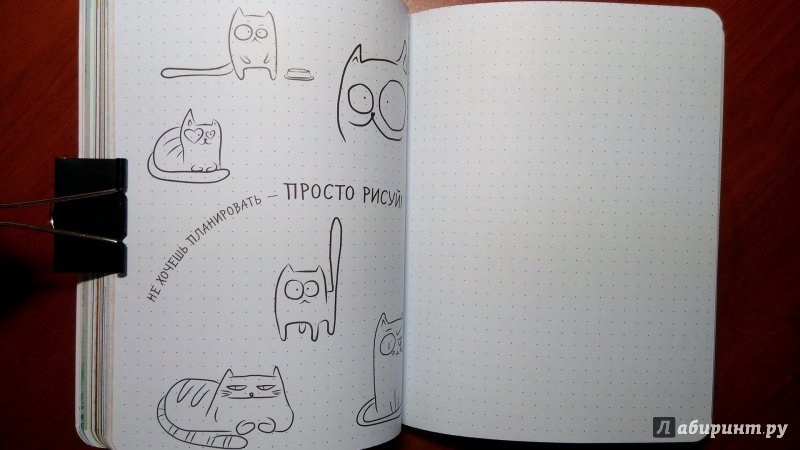 НЕ ХОЧЕШЬ ПЛАНИРОВАТЬ — ПРОСТО РИСУЙ!
Лабиринт.ру